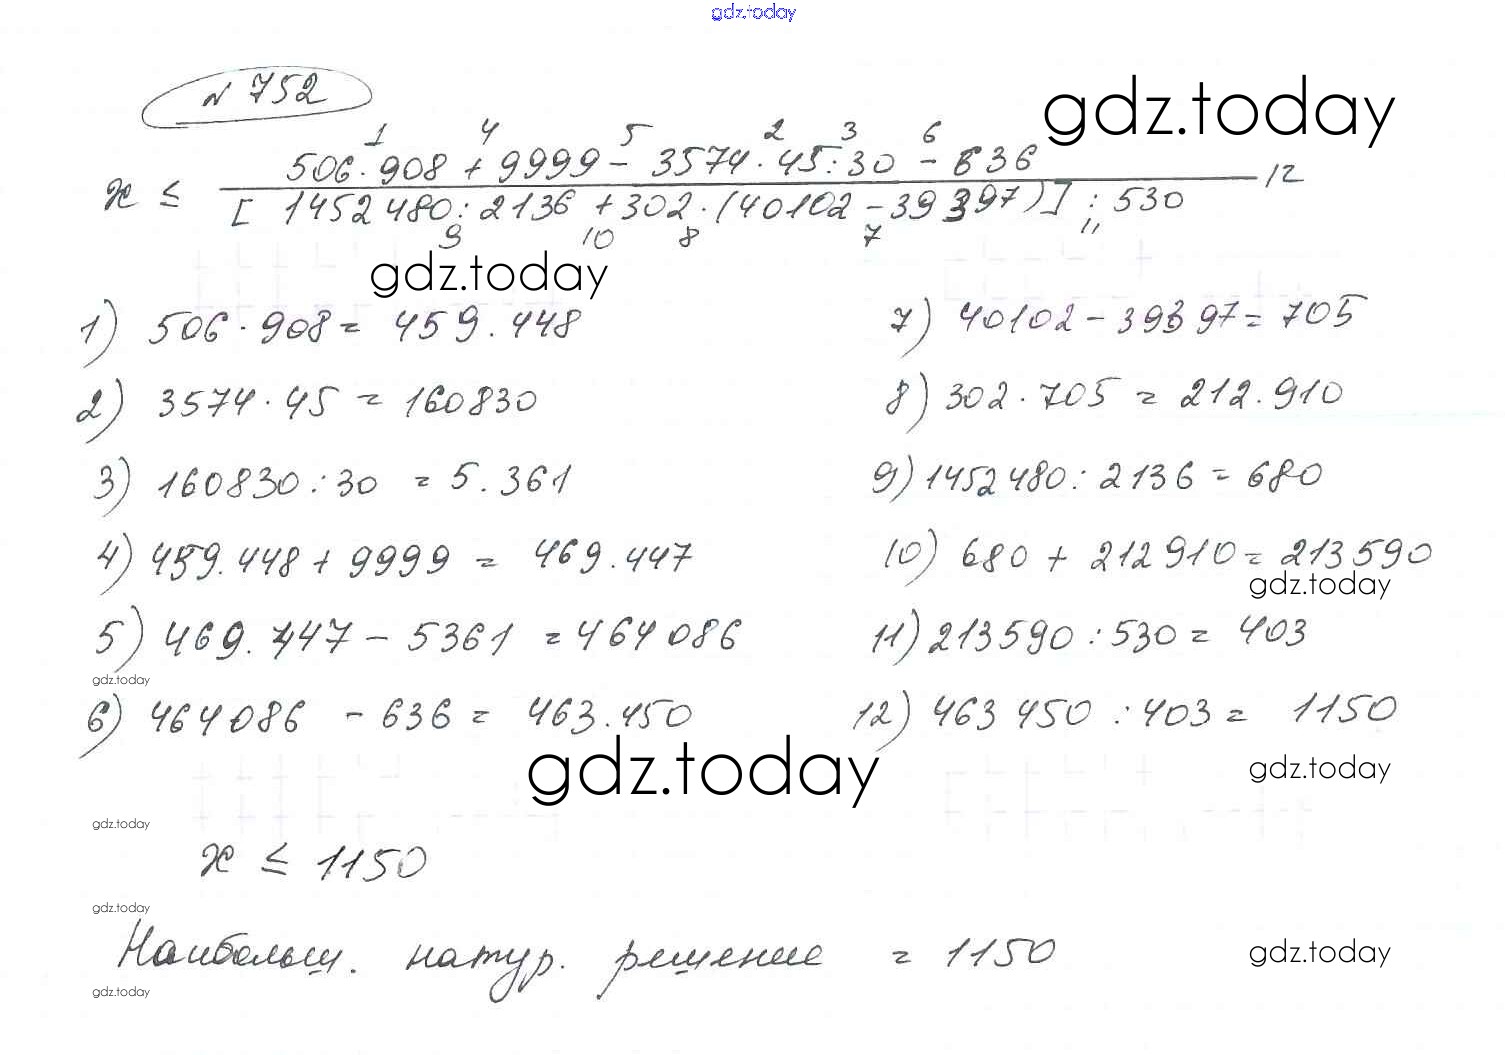 gdz.today
N 752
gdz.today
1 4 5 2 3 6
506 · 908 + 9999 - 3574 · 45 : 30 - 636
x ≤ 12
[ 1452480 : 2136 + 302 · (40102 - 39397) ] : 530
9 10 8 7 11
gdz.today
1) 506 · 908 = 459.448
7) 40102 - 39397 = 705
2) 3574 · 45 = 160830
8) 302 · 705 = 212.910
3) 160830 : 30 = 5.361
9) 1452480 : 2136 = 680
4) 459.448 + 9999 = 469.447
10) 680 + 212910 = 213590
gdz.today
5) 469.447 - 5361 = 464086
11) 213590 : 530 = 403
gdz.today
6) 464086 - 636 = 463.450
12) 463450 : 403 = 1150
gdz.today
gdz.today
gdz.today
x ≤ 1150
gdz.today
Наибольш. натур. решение = 1150
gdz.today
gdz.today